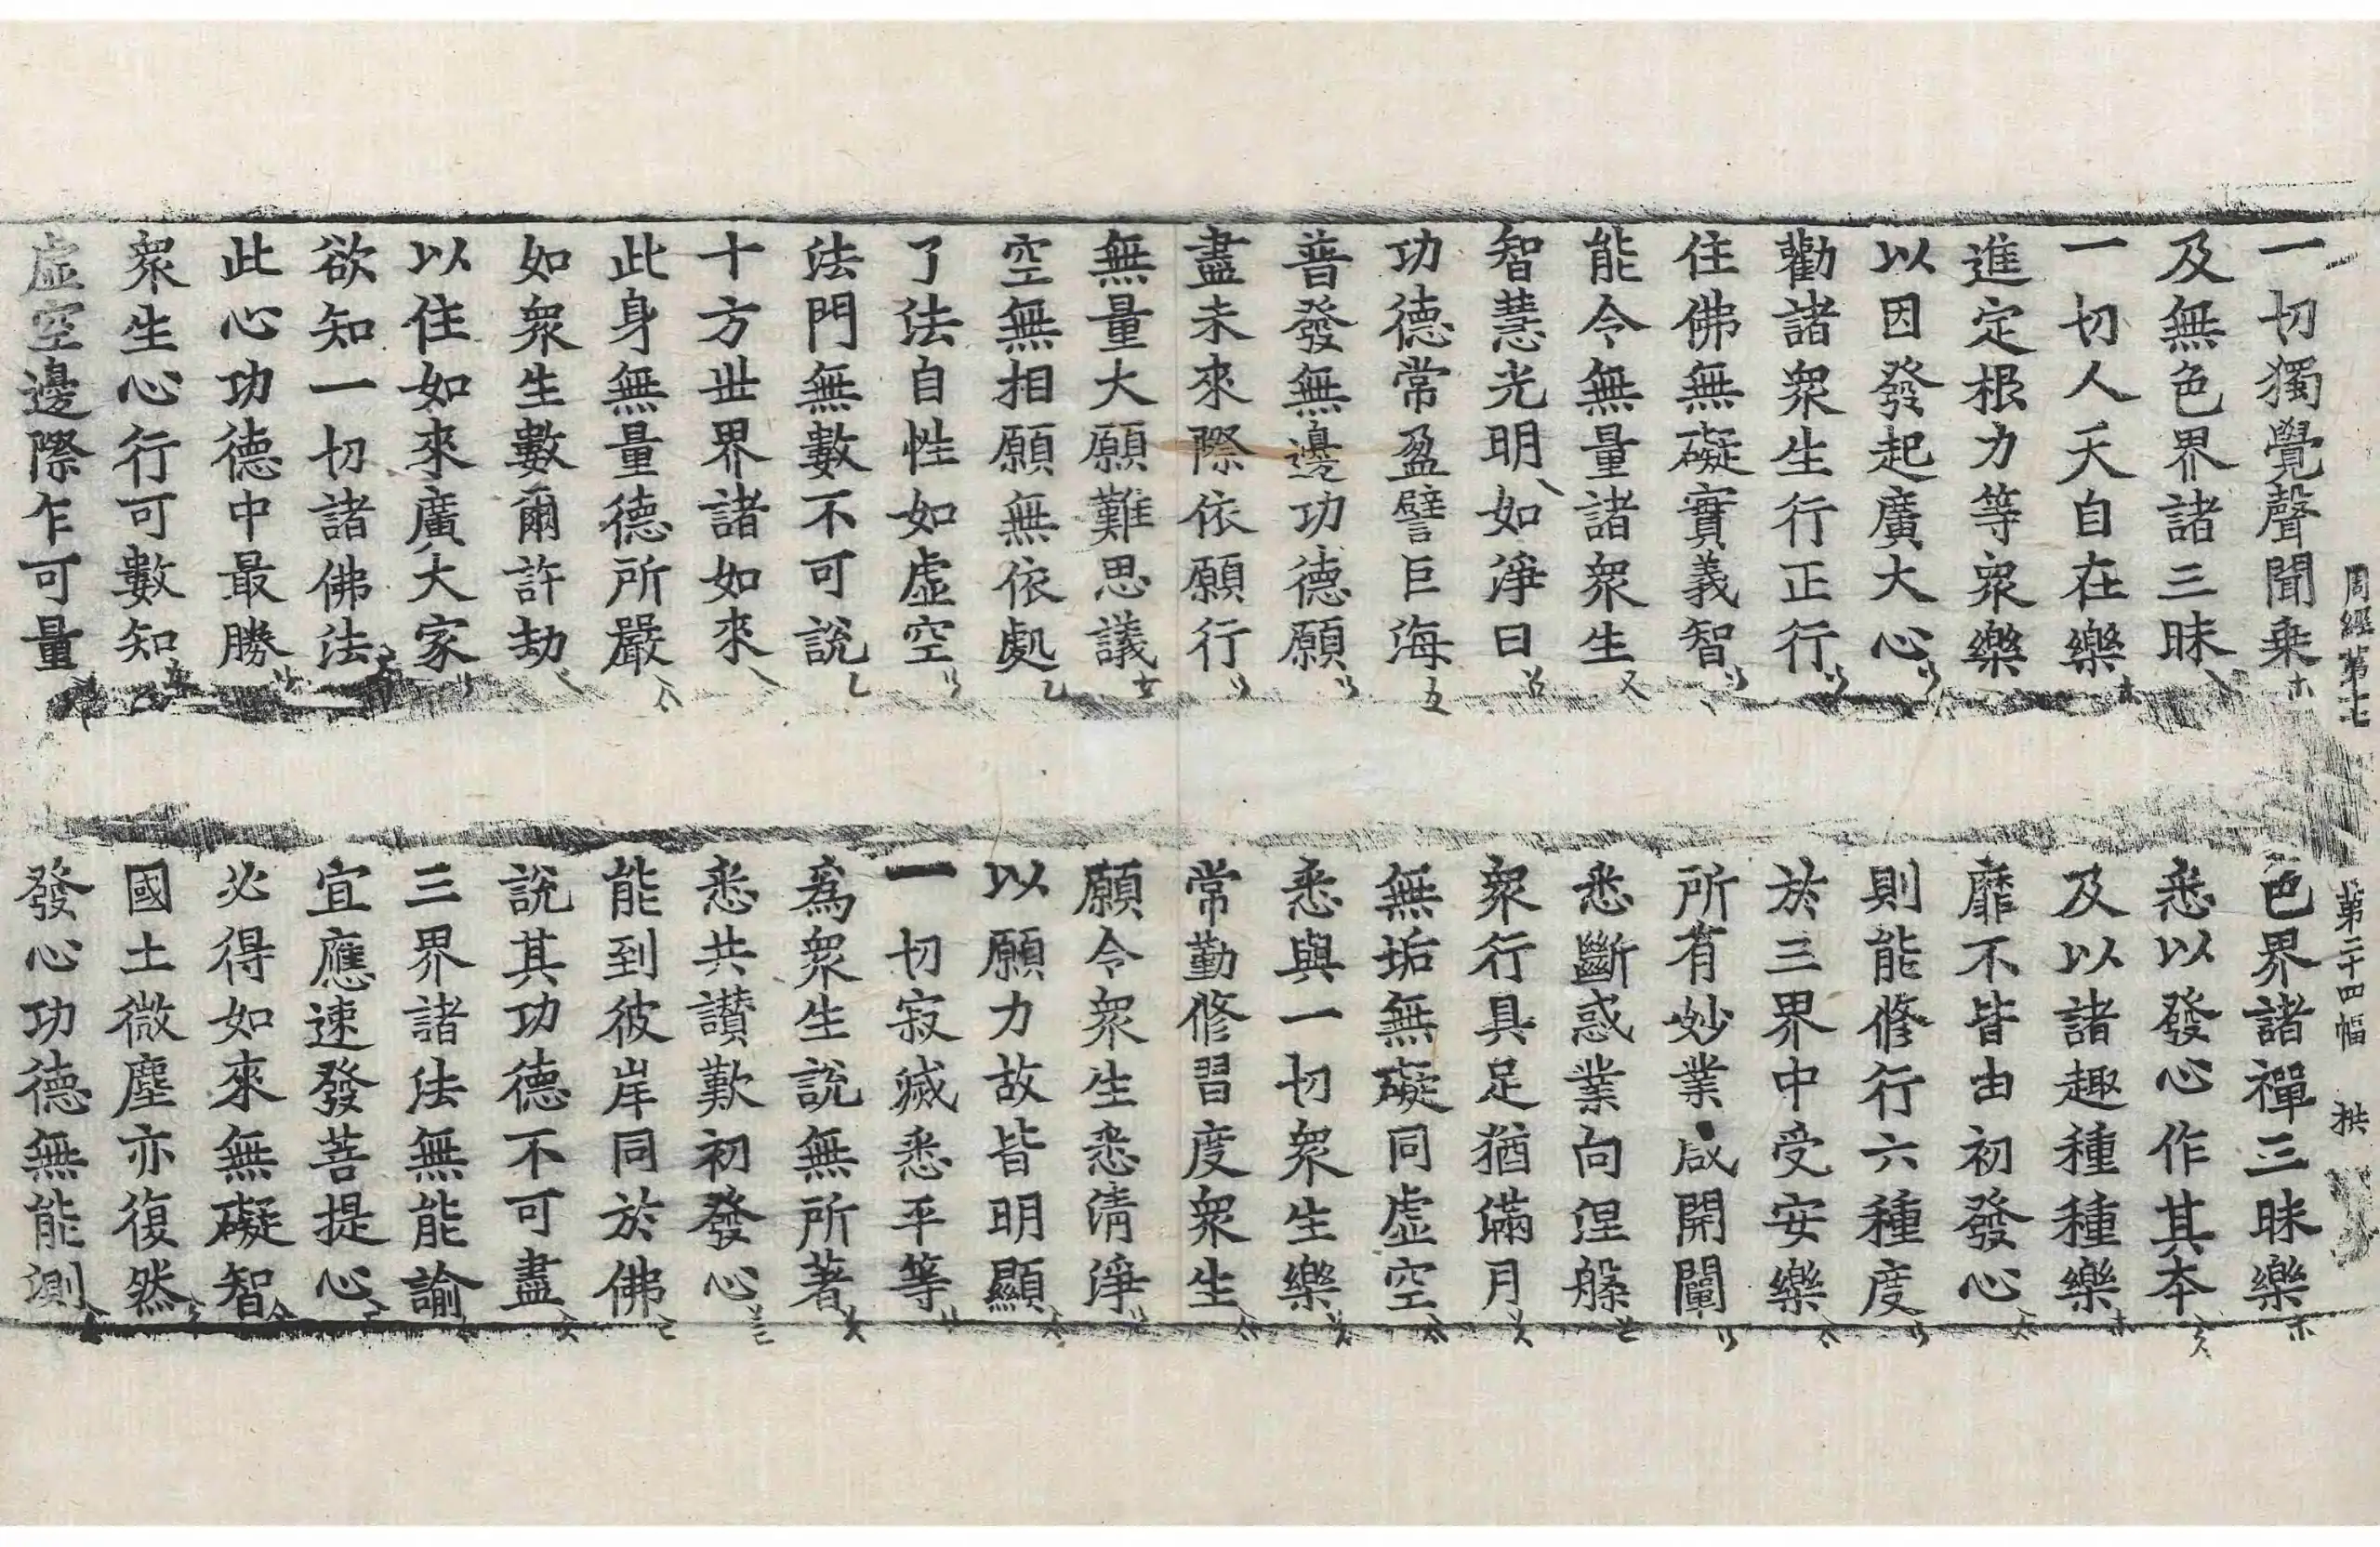 周經第十七 第二十四幅 拱
一切獨覺聲聞乗 色界諸禪三昧樂
及無色界諸三昧 悉以發心作其本
一切人天自在樂 及以諸趣種種樂
進定根力等衆樂 靡不皆由初發心
以因發起廣大心 則能修行六種度
勸諸衆生行正行 於三界中受安樂
住佛無礙實義智 所有妙業咸開闡
能令無量諸衆生 悉斷惑業向涅槃
智慧光明如淨日 衆行具足猶滿月
功德常盈譬巨海 無垢無礙同虛空
普發無邊功德願 悉與一切衆生樂
盡未來際依願行 常勤修習度衆生
無量大願難思議 願令衆生悉清淨
空無相願無依處 以願力故皆明顯
了法自性如虛空 一切寂滅悉平等
法門無數不可說 爲衆生說無所著
十方世界諸如來 悉共讃歎初發心
此身無量德所嚴 能到彼岸同於佛
如衆生數爾許劫 說其功德不可盡
以住如來廣大家 三界諸法無能諭
欲知一切諸佛法 宜應速發菩提心
此心功德中最勝 必得如來無礙智
衆生心行可數知 國土微塵亦復然
虛空邊際乍可量 發心功德無能測